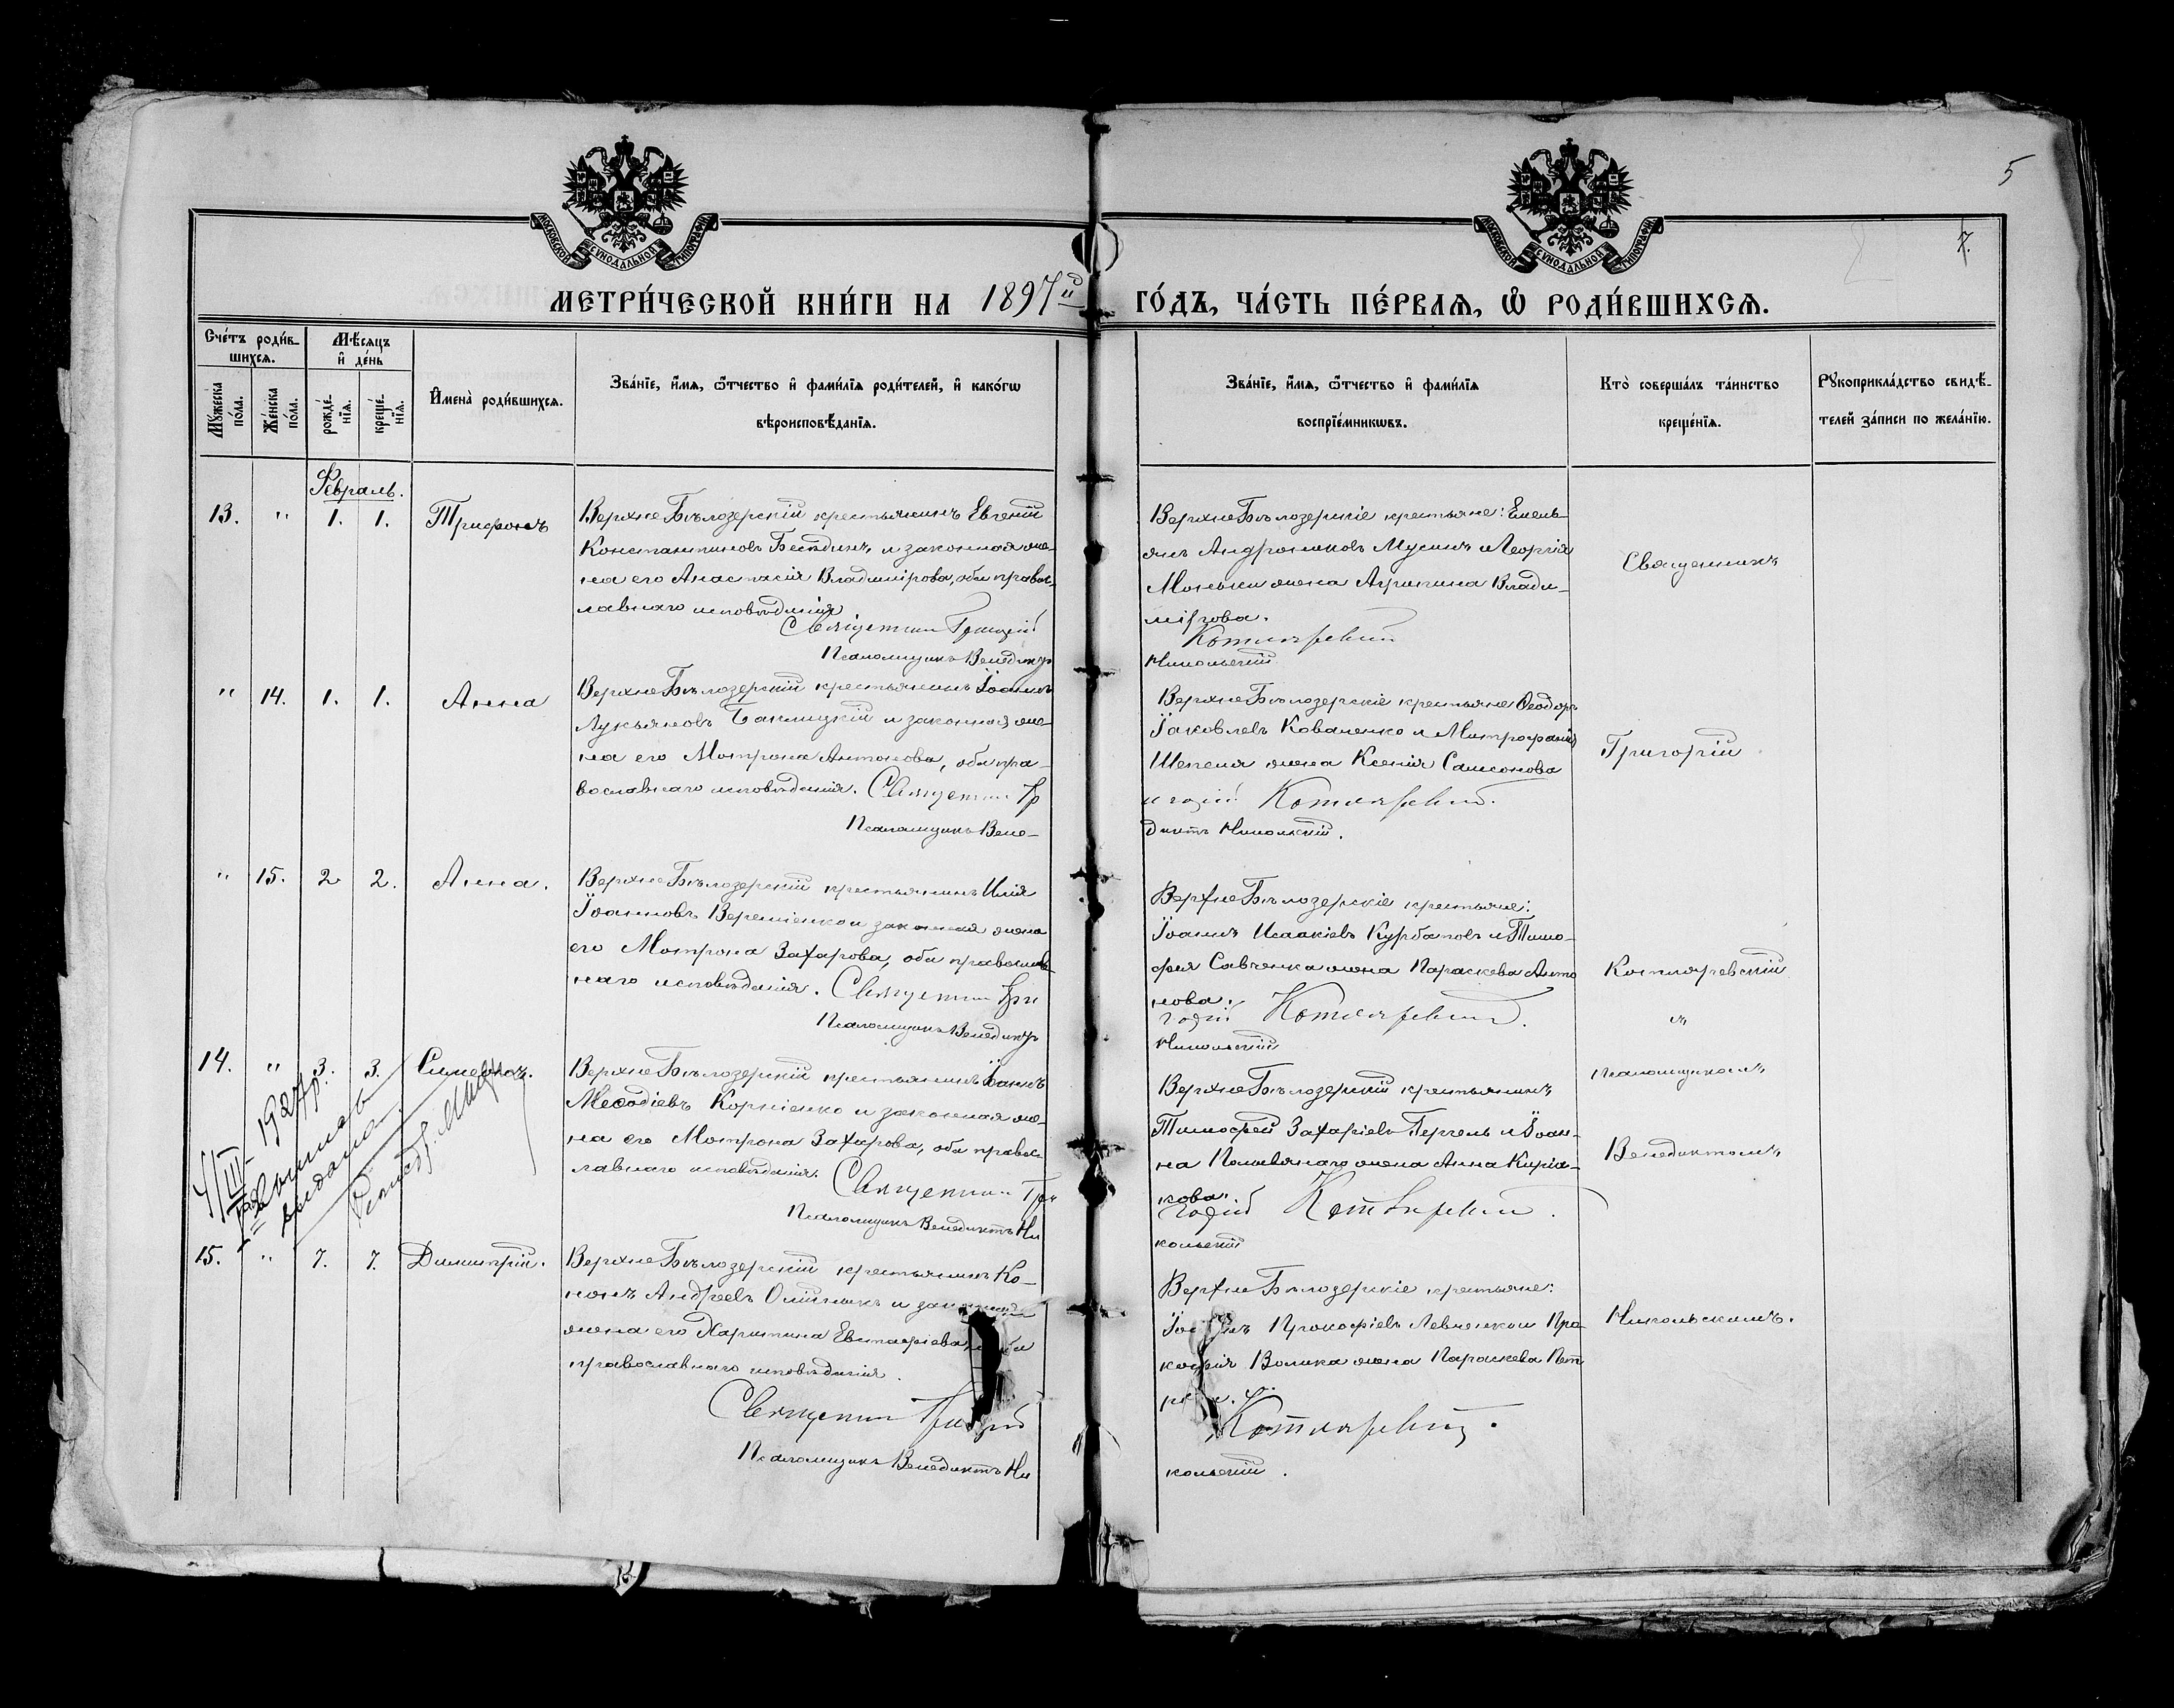 5
7.
МОСКОВСКОЙ СѴНОДАЛЬНОЙ ТИПОГРАФІИ
МОСКОВСКОЙ СѴНОДАЛЬНОЙ ТИПОГРАФІИ
МЕТРИ́ЧЕСКОЙ КНИ́ГИ НА 1897й ГО́ДЪ, ЧА́СТЬ ПЕ́РВАѦ, Ѽ РОДИ́ВШИХСѦ.
Сче́тъ роди́в-
шихсѧ.
Мꙋжеска по́ла.
Же́нска по́ла.
Мѣ́сяцъ
и҆ де́нь
рожде́-
нїѧ.
креще́-
нїѧ.
И҆мена̀ роди́вшихсѧ.
Зва́нїе, и҆́мѧ, ѻ҆́тчество и҆ фами́лїѧ роди́телей, и҆ како́гѡ
вѣроисповѣ́данїѧ.
Зва́нїе, и҆́мѧ, ѻ҆́тчество и҆ фами́лїѧ
воспрїе́мникѡвъ.
Кто̀ соверша́лъ та́инство
креще́нїѧ.
Рꙋкоприкла́дство свидѣ́-
телей за́писи по жела́нїю.
Февраль.
13. " 1. 1. Трифонъ
ВерхнеБѣлозерскій крестьянинъ Евгеній
Константиновъ Бесѣдинъ и законная же-
на его Анастасія Владимірова, оба правос-
лавнаго исповѣданія.
Священникъ Григорій
Псаломщикъ Венедиктъ
ВерхнеБѣлозерскіе крестьяне: Емель-
янъ Андрониковъ Мусинъ и Георгія
Монька жена Агрипина Влади-
мірова.
Котляревскій
Никольскій
Священникъ
" 14. 1. 1. Анна
ВерхнеБѣлозерскій крестьянинъ Іоаннъ
Лукьяновъ Баклицкій и законная же-
на его Мотрона Антонова, оба пра-
вославнаго исповѣданія. Священникъ Гр
Псаломщикъ Вене-
ВерхнеБѣлозерскіе крестьяне Ѳеодоръ
Іаковлевъ Коваленко и Митрофанія
Шепеля жена Ксенія Самсонова
игорій Котляревскій.
диктъ Никольскій.
Григорій
" 15. 2 2. Анна.
ВерхнеБѣлозерскій крестьянинъ Илія
Іоанновъ Веремѣенко и законная жена
его Мотрона Захарова, оба православ-
наго исповѣданія. Священникъ Гри
Псаломщикъ Венедиктъ
ВерхнеБѣлозерскіе крестьяне:
Іоаннъ Исаакіевъ Курбатовъ и Тимо-
фея Савченка жена Параскева Анто
нова.
горій Котляревскій.
Никольскій
Котляревскій
и
14. " 3. 3. Симеонъ.
ВерхнеБѣлозерскій крестьянинъ Іоаннъ
Меѳодіевъ Корніенко и законная же-
на его Мотрона Захарова, оба правос-
лавнаго исповѣданія. Священникъ Гри
Псаломщикъ Венедиктъ Ни
ВерхнеБѣлозерскій крестьянинъ
Тимофей Захаріевъ Гергель и Іоан-
на Полывянаго жена Анна Кирія-
кова.
горій Котляревскій.
кольскій
псаломщикомъ
Венедиктомъ
4/III - 1927 р.
виписав
видана.
15. " 7. 7. Димитрій.
ВерхнеБѣлозерскій крестьянинъ Ко-
нонъ Андреевъ Олійникъ и законная
жена его Харитина Евстафіева, оба
православнаго исповѣданія.
Священникъ Григорій
Псаломщикъ Венедиктъ Ни
ВерхнеБѣлозерскіе крестьяне:
Прокофіевъ Левченко и Про
кофія Волика жена Параскева Пет
Котляревскій.
кольскій.
Никольскимъ.